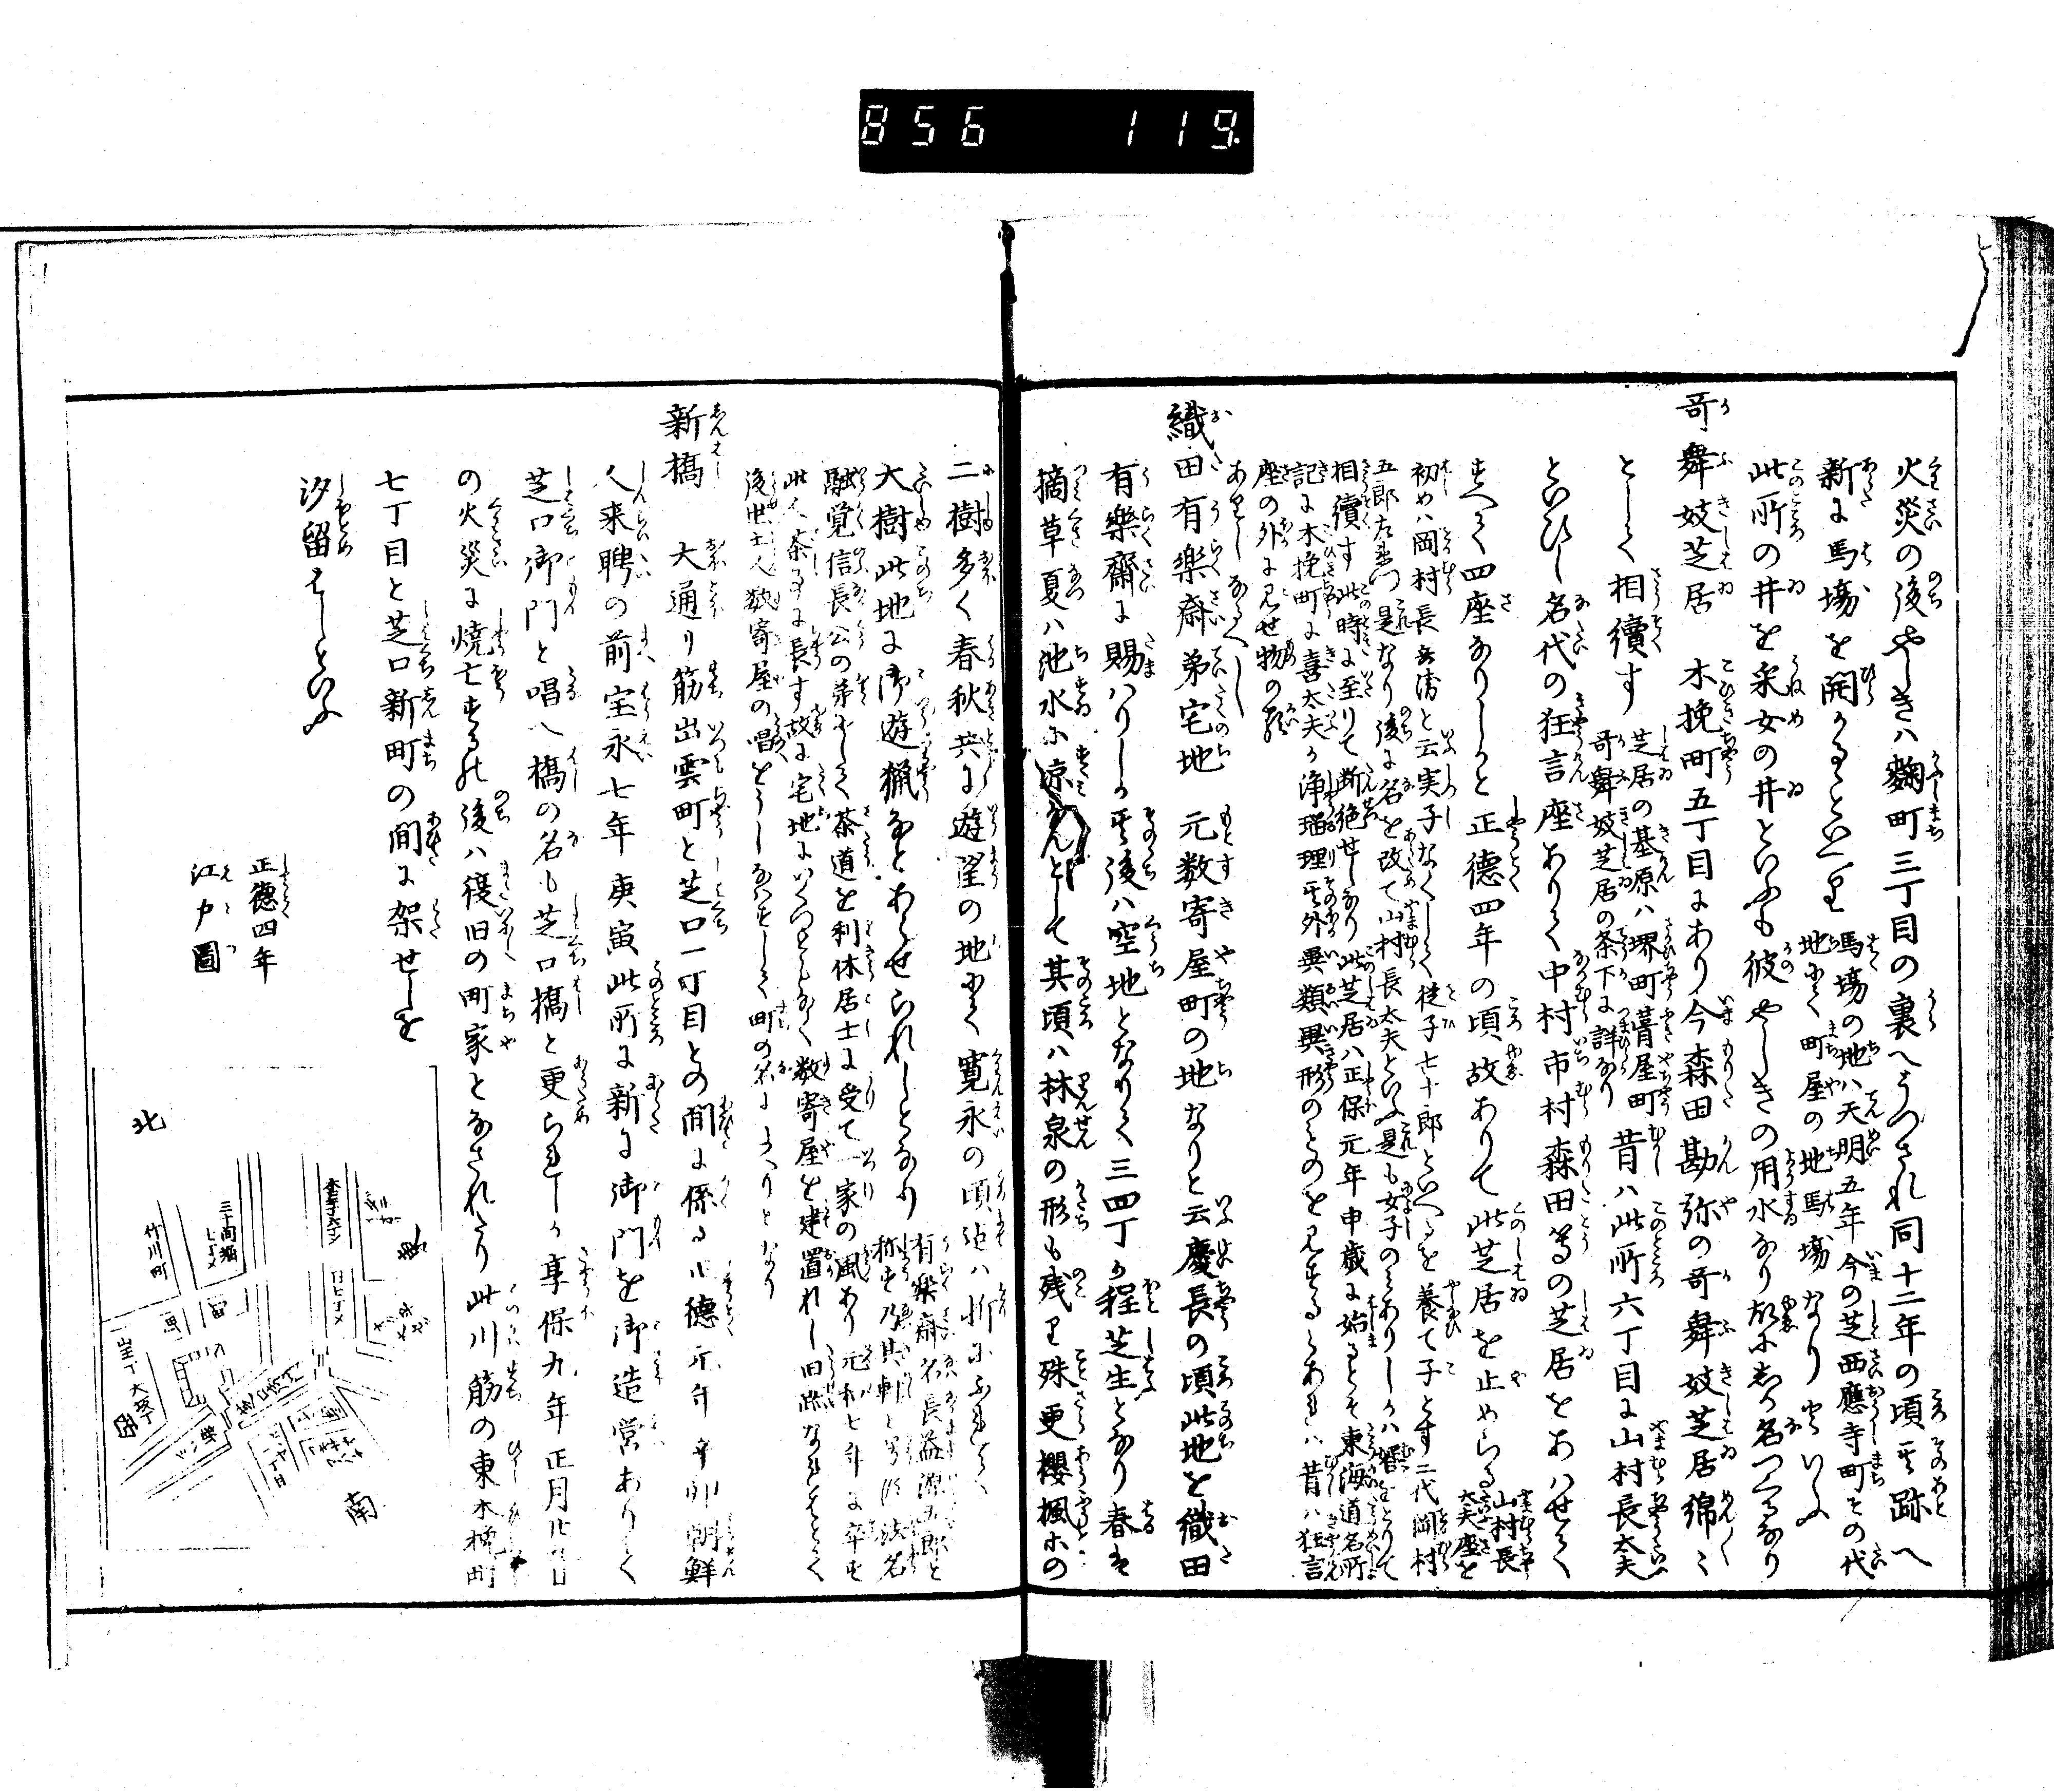 856 119
火災の後やしきハ麹町三丁目の裏へうつされ同十二年の頃其跡へ
新に馬場を開かるゝといへり 馬場の地ハ天明五年今の芝西應寺町その代
地にて町屋の地馬場なりといふ
此所の井を采女の井といふも彼やしきの用水なり故にしか名つくるなり
哥舞妓芝居 木挽町五丁目にあり今森田勘弥の哥舞妓芝居綿々
として相續す 芝居の基原ハ堺町葺屋町
哥舞妓芝居の条下に詳なり 昔ハ此所六丁目に山村長太夫
といひし名代の狂言座ありて中村市村森田等の芝居をあハせて
すへて四座なりしかと正徳四年の頃故ありて此芝居を止めらる 山村長
太夫座を
初めハ岡村長兵衛と云実子なくして従子七十郎といへるを養て子とす二代岡村
五郎左衛門是なり後に名を改て山村長太夫といふ是も女子のミありしかハ婿をとりて
相續す此時に至りて断絶せしなり此芝居ハ正保元年申歳に始るとそ東海道名所
記に木挽町に喜太夫か浄瑠理其外異類異形のものを見するとあれハ昔ハ狂言
座の外に見せ物の類
ありしなるへし
織田有樂齋弟宅地 元数寄屋町の地なりと云慶長の頃此地を織田
有樂齋に賜ハりしか其後ハ空地となりて三四丁か程芝生となり春は
摘草夏ハ池水に涼なんとして其頃ハ林泉の形も残り殊更櫻楓等の
二樹多く春秋共に遊望の地にて寛永の頃迄ハ折にふれて
大樹此地に御遊猟なとあらせられしとなり 有樂齋名長益源五郎と
称す乃其軒と号し法名
融覚信長公の弟にして茶道を利休居士に受て一家の風あり元和七年に卒す
此人茶事に長す故に宅地にいくつともなく数寄屋を建置れし旧跡なれはとて
後世士人数寄屋の唱をうしなはすして町の名によへりとなり
新橋 大通り筋出雲町と芝口一丁目との間に係る正徳元年辛卯朝鮮
人来聘の前宝永七年庚寅此所に新に御門を御造営ありて
芝口御門と唱へ橋の名も芝口橋と更られしか享保九年正月廿九日
の火災に焼亡するの後ハ復旧の町家となされたり此川筋の東木挽町
七丁目と芝口新町の間に架せしを
汐留はしといふ
正徳四年
江戸圖
北
南
竹川町
三十間堀
七丁メ
木挽丁六丁メ
同七丁メ
山王丁
大坂丁